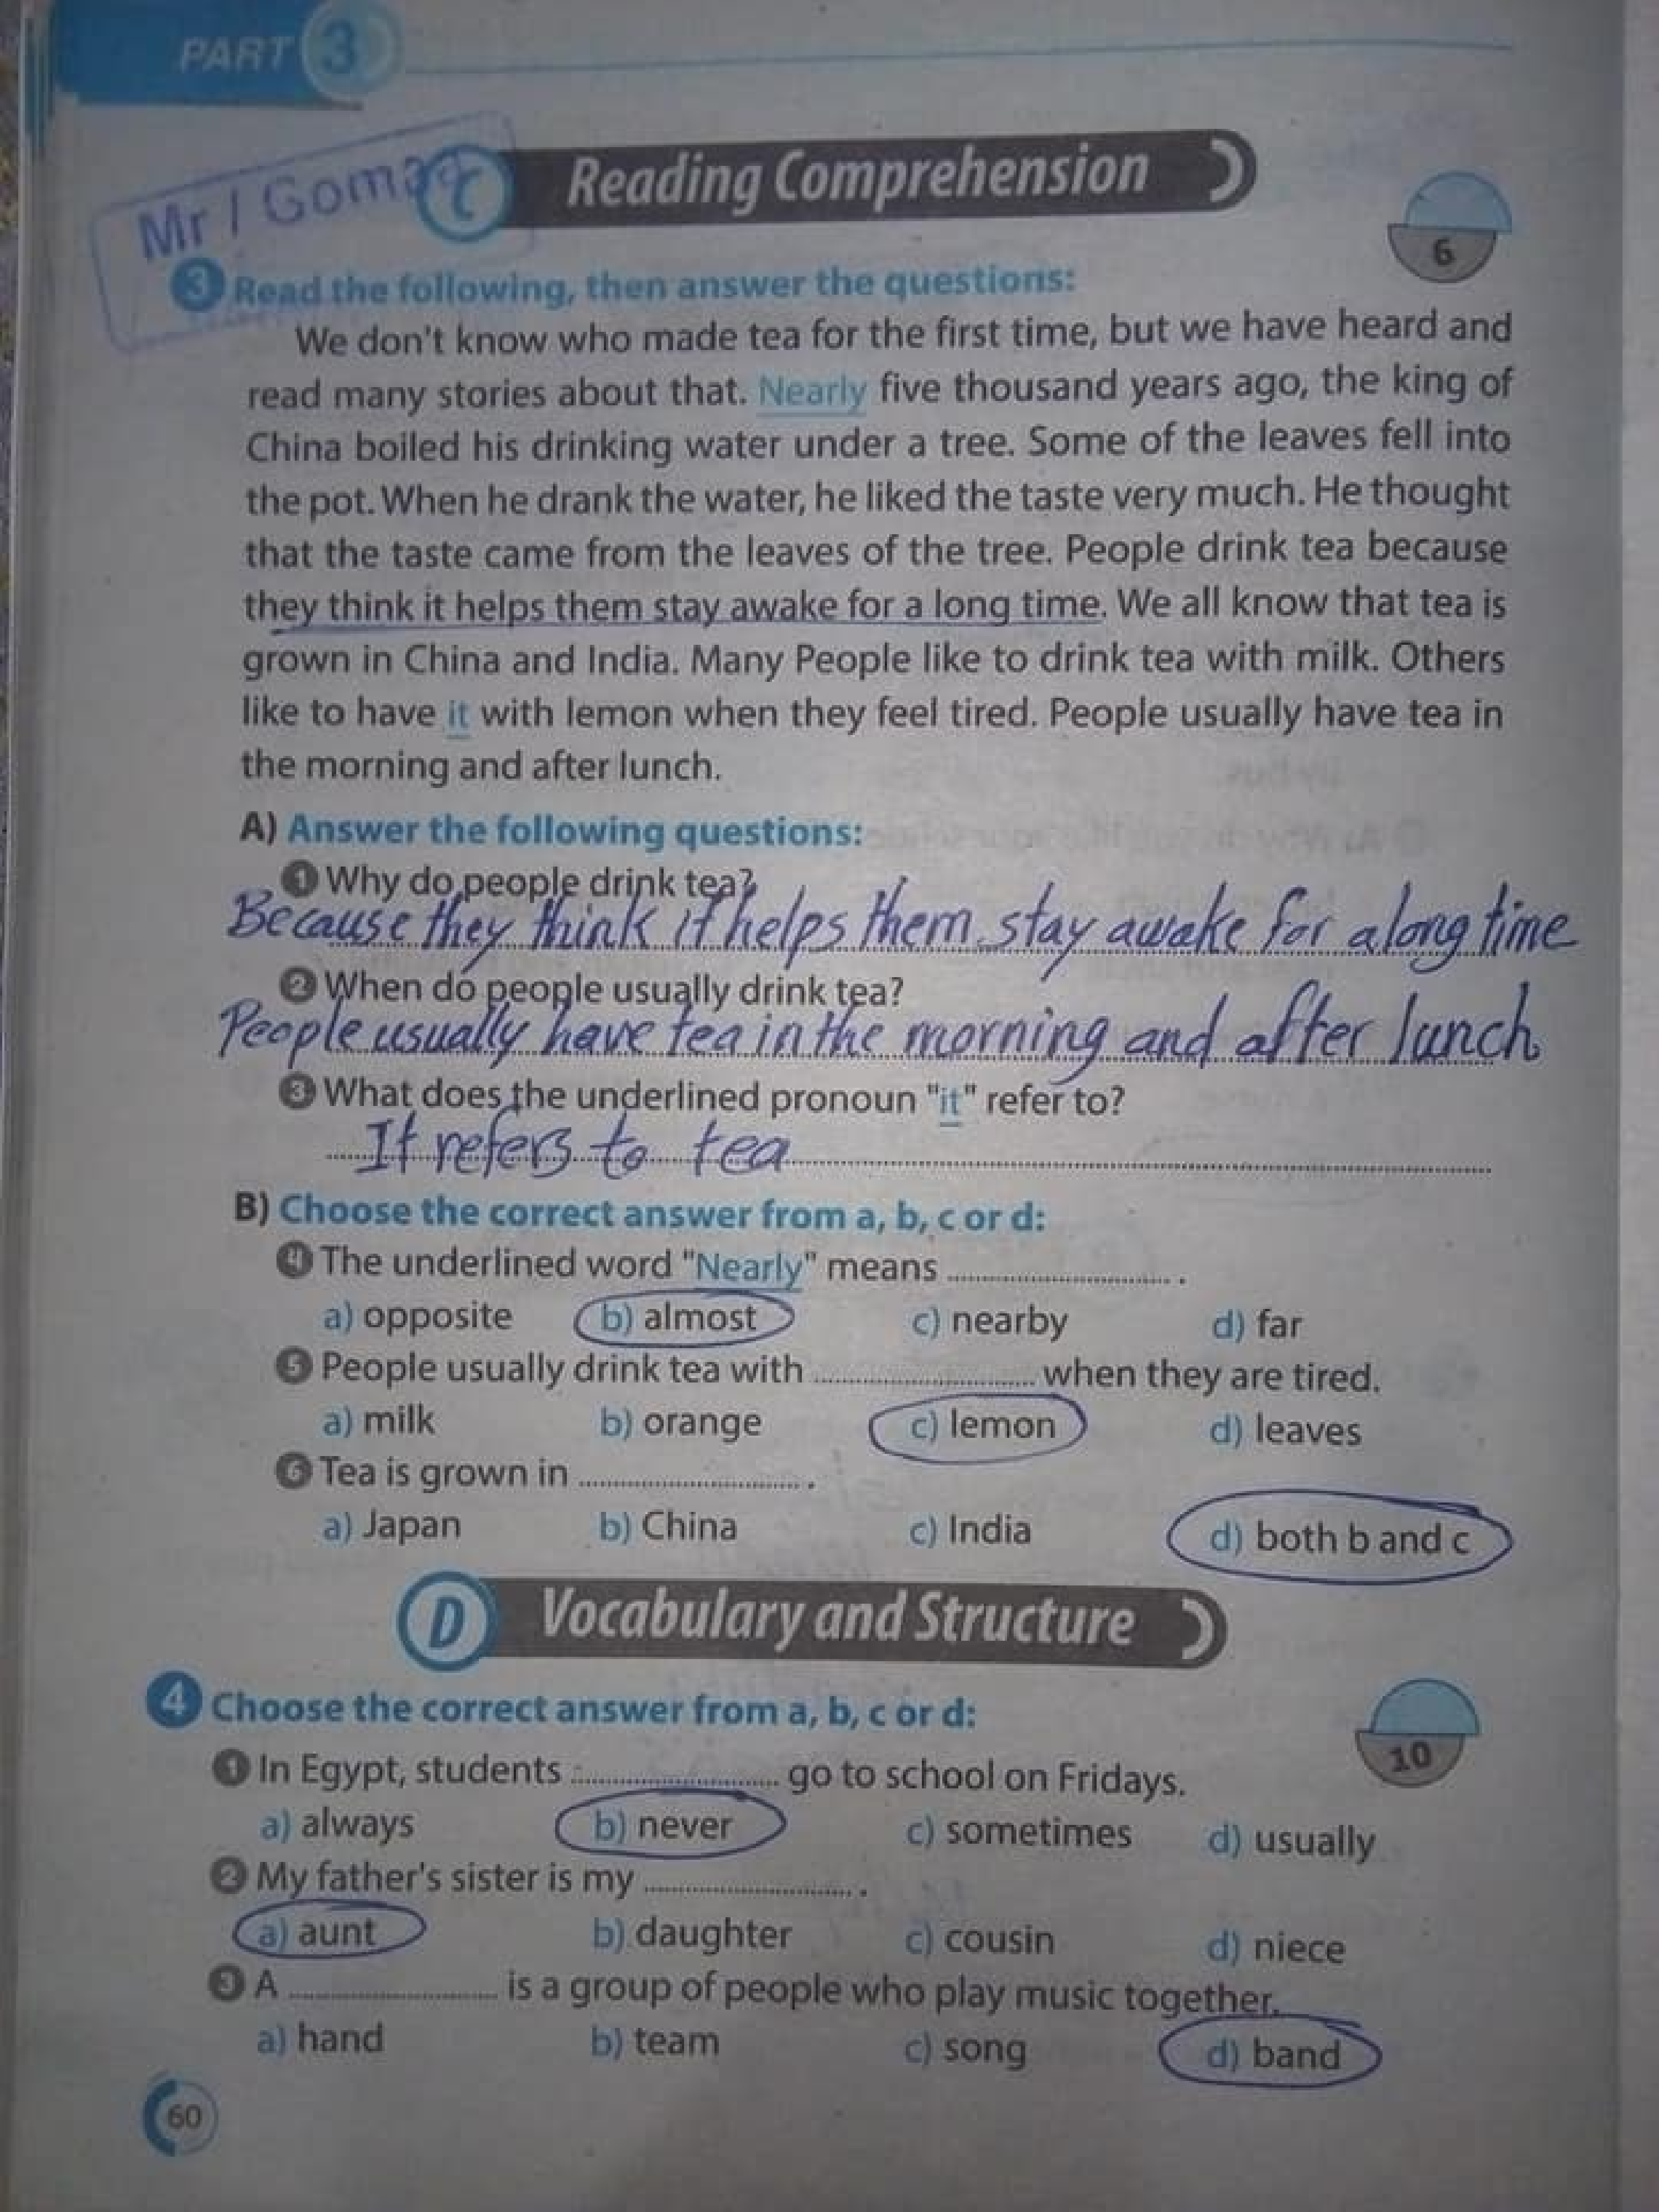 PART 3
Mr / Gomaa
C Reading Comprehension
6
3 Read the following, then answer the questions:
We don't know who made tea for the first time, but we have heard and
read many stories about that. Nearly five thousand years ago, the king of
China boiled his drinking water under a tree. Some of the leaves fell into
the pot. When he drank the water, he liked the taste very much. He thought
that the taste came from the leaves of the tree. People drink tea because
they think it helps them stay awake for a long time. We all know that tea is
grown in China and India. Many People like to drink tea with milk. Others
like to have it with lemon when they feel tired. People usually have tea in
the morning and after lunch.
A) Answer the following questions:
1 Why do people drink tea?
Because they think it helps them stay awake for a long time
2 When do people usually drink tea?
People usually have tea in the morning and after lunch
3 What does the underlined pronoun "it" refer to?
It refers to tea
B) Choose the correct answer from a, b, c or d:
4 The underlined word "Nearly" means .............................. .
a) opposite b) almost c) nearby d) far
5 People usually drink tea with .............................. when they are tired.
a) milk b) orange c) lemon d) leaves
6 Tea is grown in .............................. .
a) Japan b) China c) India d) both b and c
D Vocabulary and Structure
4 Choose the correct answer from a, b, c or d:
10
1 In Egypt, students .............................. go to school on Fridays.
a) always b) never c) sometimes d) usually
2 My father's sister is my .............................. .
a) aunt b) daughter c) cousin d) niece
3 A .............................. is a group of people who play music together.
a) hand b) team c) song d) band
60